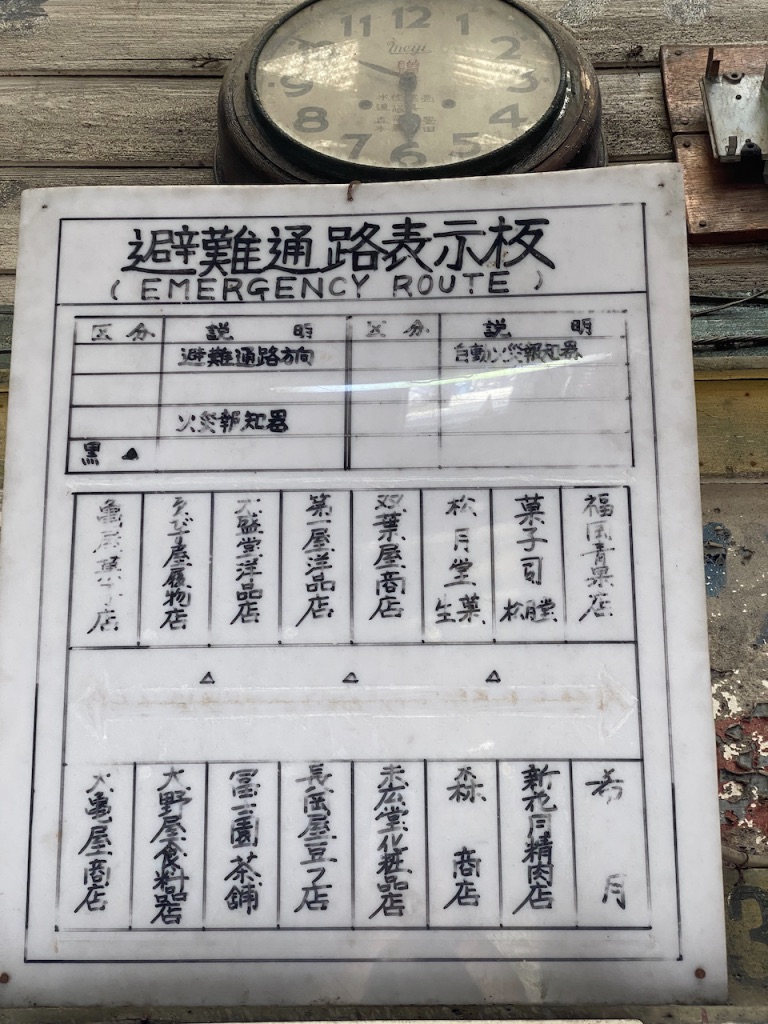 11 12 1
2
9 3
8
7 6 5
避難通路表示板
(EMERGENCY ROUTE)
区分 説明 区分 説明
避難通路方向 自動火災報知器
火災報知器
黒 △
福岡青果店
菓子司 松月堂
松月堂 生菓
双葉屋商店
第一屋洋品店
大盛堂洋品店
ゑびす屋履物店
亀屋菓子店
△ △ △
寿月
新花月精肉店
森商店
末広堂化粧品店
長岡屋豆フ店
冨士園茶舗
大野屋食料品店
大亀屋商店